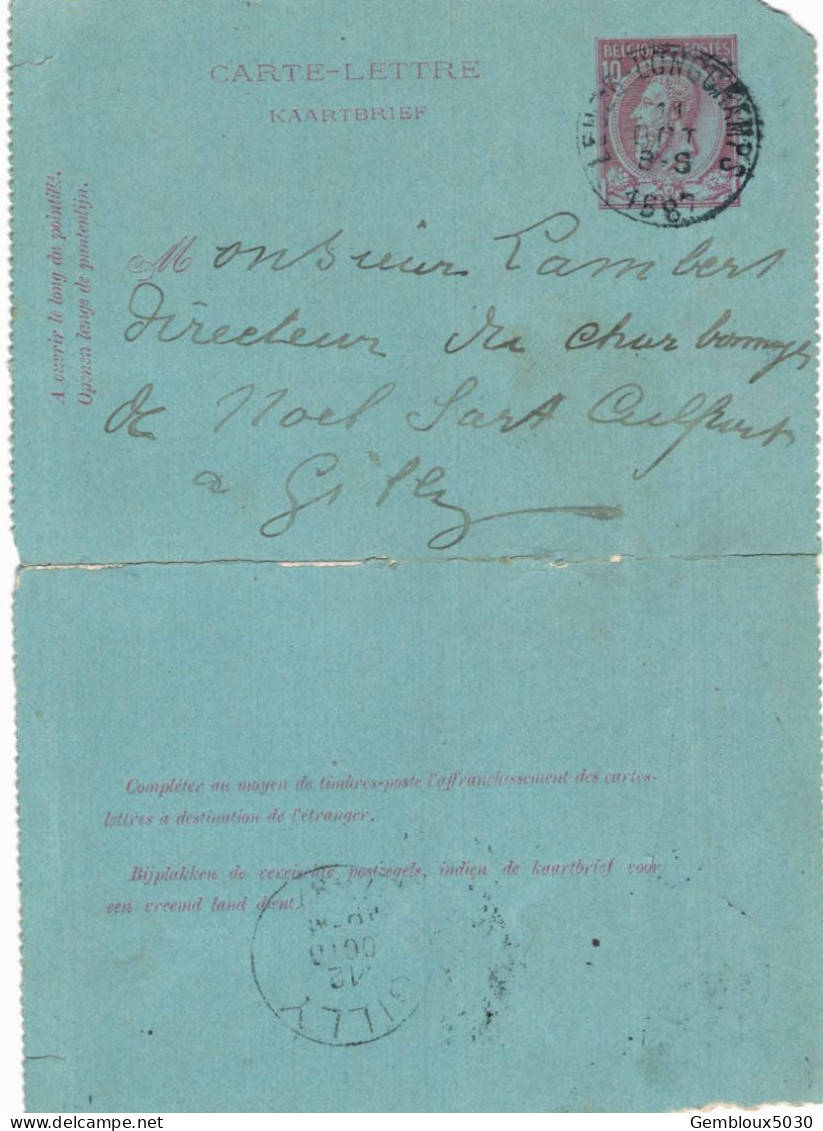 CARTE-LETTRE
KAARTBRIEF
BELGIQUE POSTES
10
LONGCHAMPS
11
OCT
8-S
1887
A ouvrir le long du pointillé.
Openen langs de puntentijn.
Monsieur Lambert
Directeur du charbonnage
de Noel Sart Culpart
a Gilly
Compléter au moyen de timbres-poste l'affranchissement des cartes-
lettres à destination de l'étranger.
Bijplakken de vereischte postzegels, indien de kaartbrief voor
een vreemd land dient.
GILLY
12
OCTO
Gembloux5030